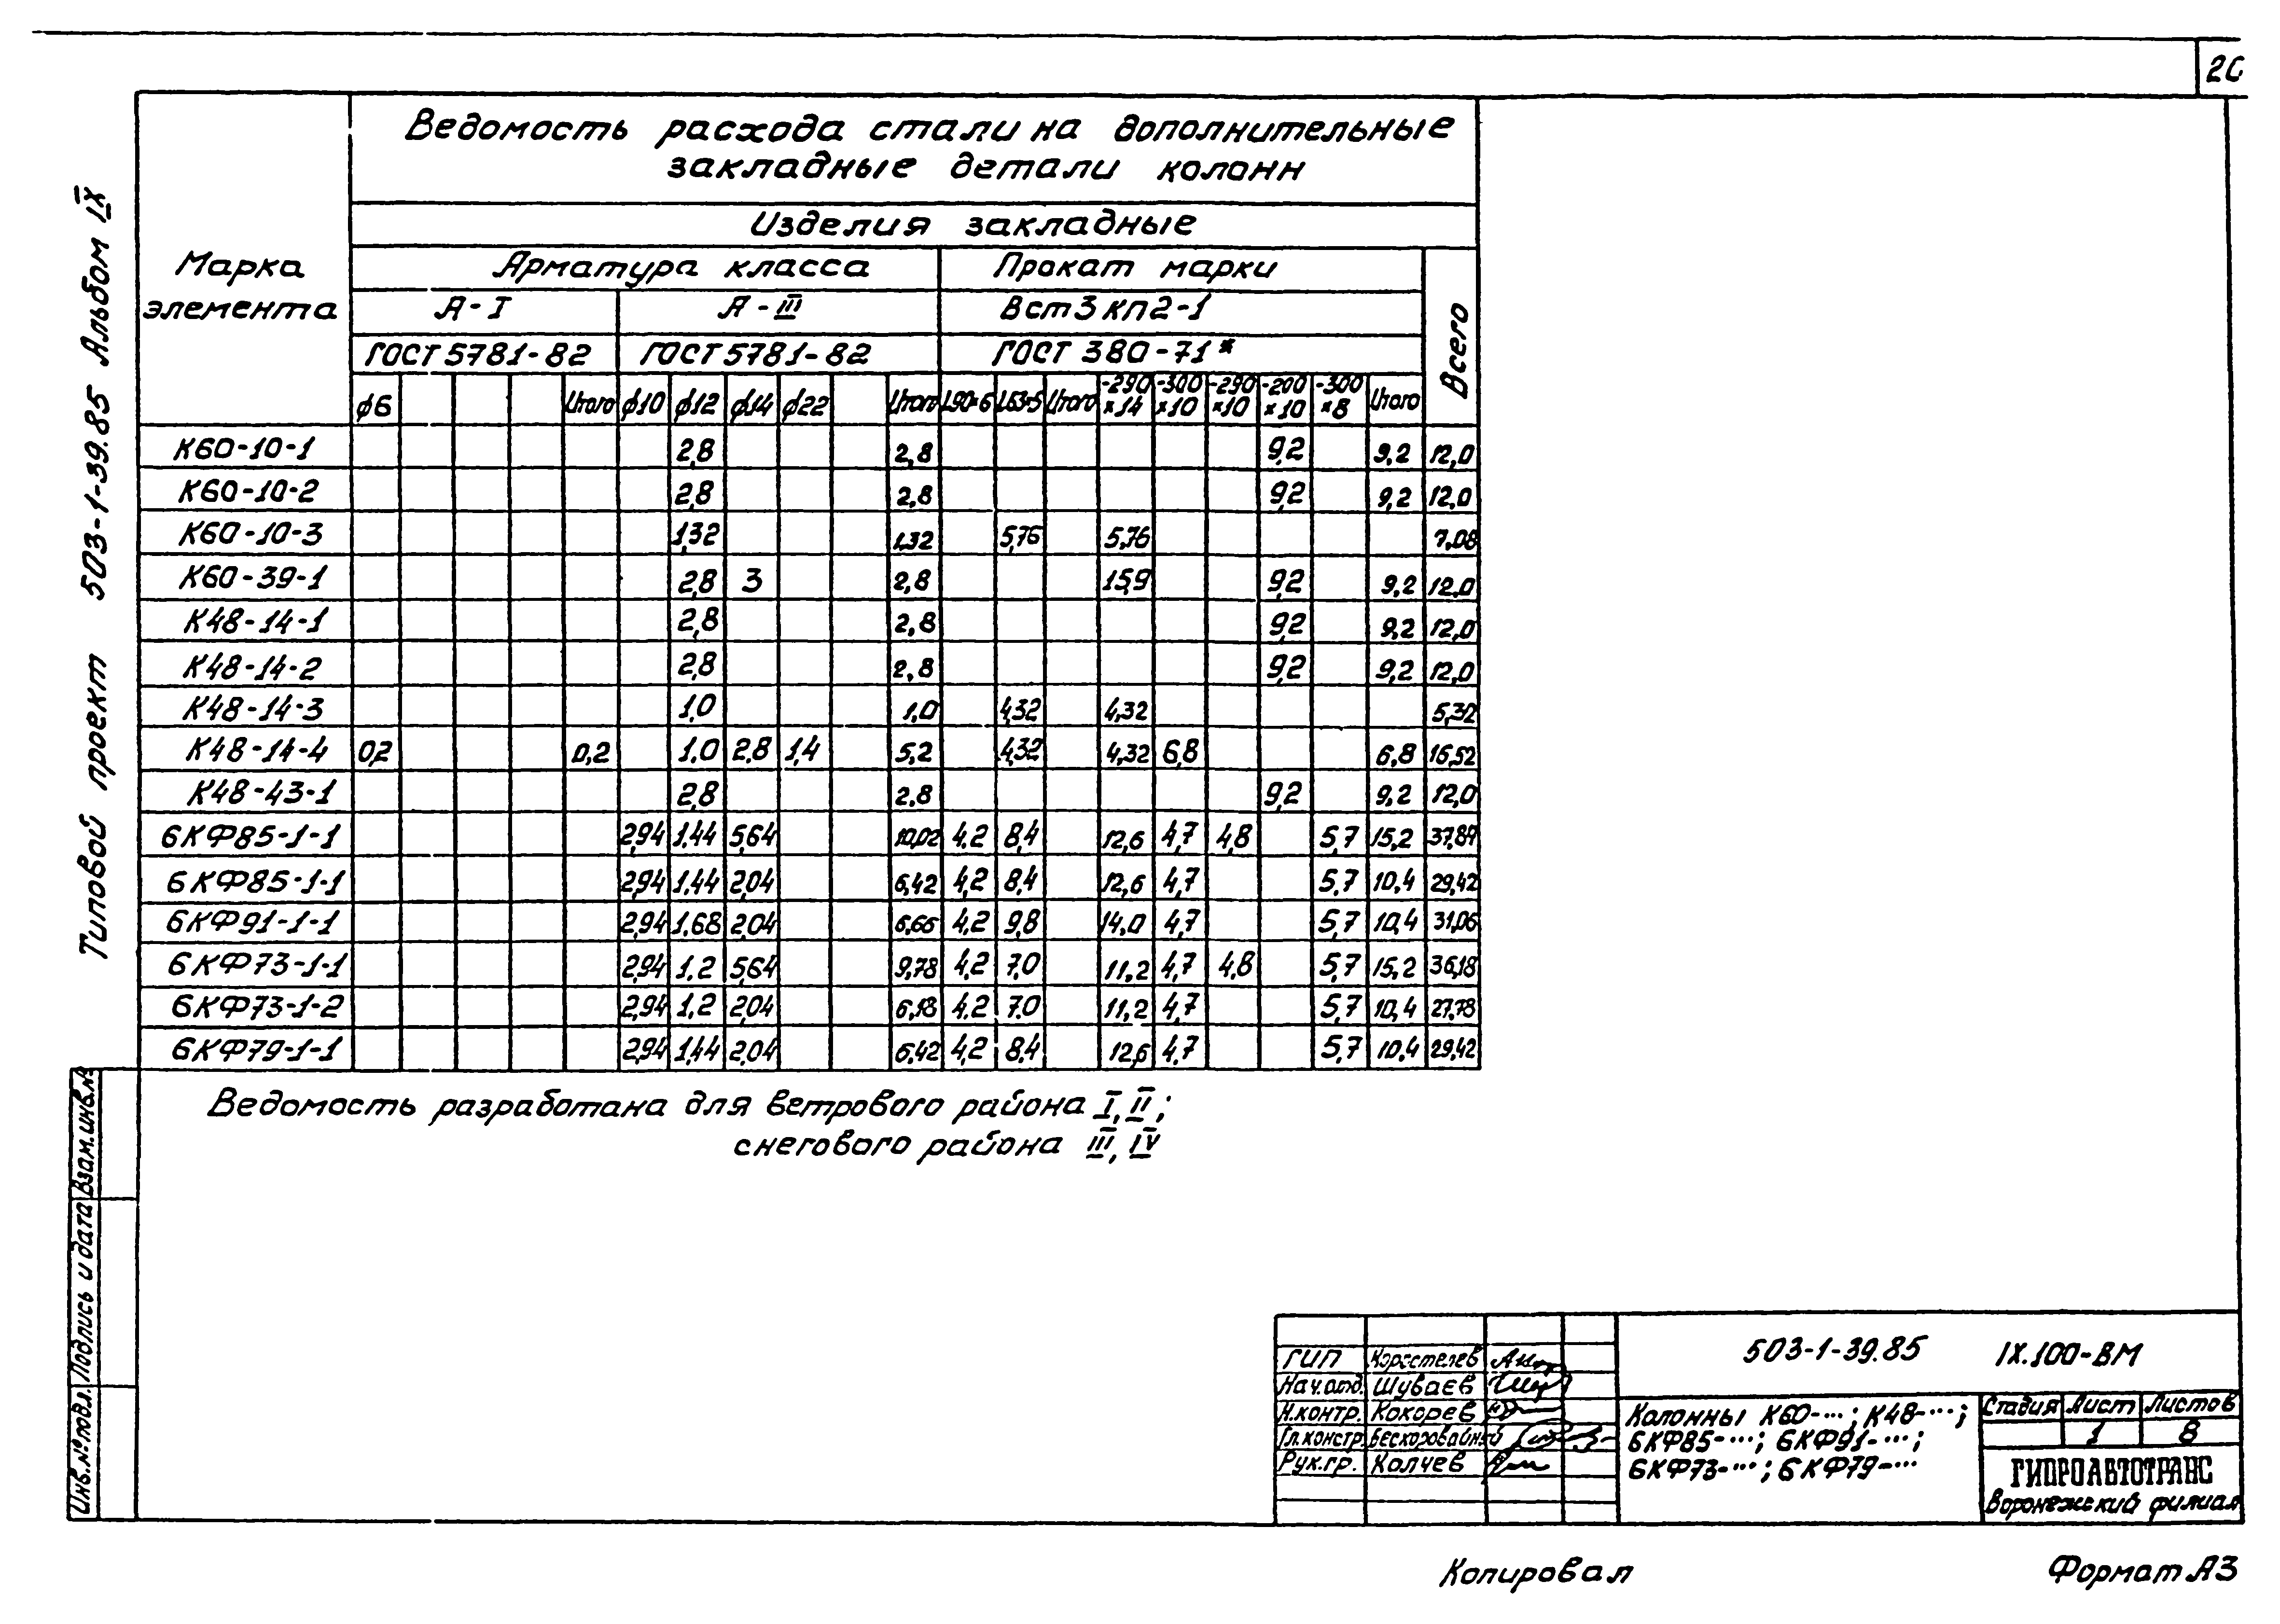 20
Типовой проект 503-1-39.85 Альбом IX
Ведомость расхода стали на дополнительные
закладные детали колонн
Марка
элемента
Изделия закладные
Арматура класса Прокат марки Всего
А-I А-III Вст3кп2-1
ГОСТ 5781-82 ГОСТ 5781-82 ГОСТ 380-71*
ϕ6 Итого ϕ10 ϕ12 ϕ14 ϕ22 Итого L90×6 L63×5 Итого -290×14 -300×10 -290×10 -200×10 -300×8 Итого
К60-10-1 2,8 2,8 9,2 9,2 12,0
К60-10-2 2,8 2,8 9,2 9,2 12,0
К60-10-3 1,32 1,32 5,76 5,76 7,08
К60-39-1 2,8 3 2,8 15,9 9,2 9,2 12,0
К48-14-1 2,8 2,8 9,2 9,2 12,0
К48-14-2 2,8 2,8 9,2 9,2 12,0
К48-14-3 1,0 1,0 4,32 4,32 5,32
К48-14-4 0,2 0,2 1,0 2,8 1,4 5,2 4,32 4,32 6,8 6,8 16,52
К48-43-1 2,8 2,8 9,2 9,2 12,0
6КФ85-1-1 2,94 1,44 5,64 10,02 4,2 8,4 12,6 4,7 4,8 5,7 15,2 37,84
6КФ85-1-1 2,94 1,44 2,04 6,42 4,2 8,4 12,6 4,7 5,7 10,4 29,42
6КФ91-1-1 2,94 1,68 2,04 6,66 4,2 9,8 14,0 4,7 5,7 10,4 31,06
6КФ73-1-1 2,94 1,2 5,64 9,78 4,2 7,0 11,2 4,7 4,8 5,7 15,2 36,18
6КФ73-1-2 2,94 1,2 2,04 6,18 4,2 7,0 11,2 4,7 5,7 10,4 27,78
6КФ79-1-1 2,94 1,44 2,04 6,42 4,2 8,4 12,6 4,7 5,7 10,4 29,42
Ведомость разработана для ветрового района I, II;
снегового района III, IV
Инв.№подл. Подпись и дата Взам.инв.№
503-1-39.85 IX.100-ВМ
ГИП Коростелев
Нач.отд. Шуваев
Н.контр. Кокорев
Гл.констр. Бескоровайный
Рук.гр. Колчев
Колонны К60-...; К48-...;
6КФ85-...; 6КФ91-...;
6КФ73-...; 6КФ79-...
Стадия Лист Листов
1 8
ГИПРОАВТОТРАНС
Воронежский филиал
Копировал Формат А3